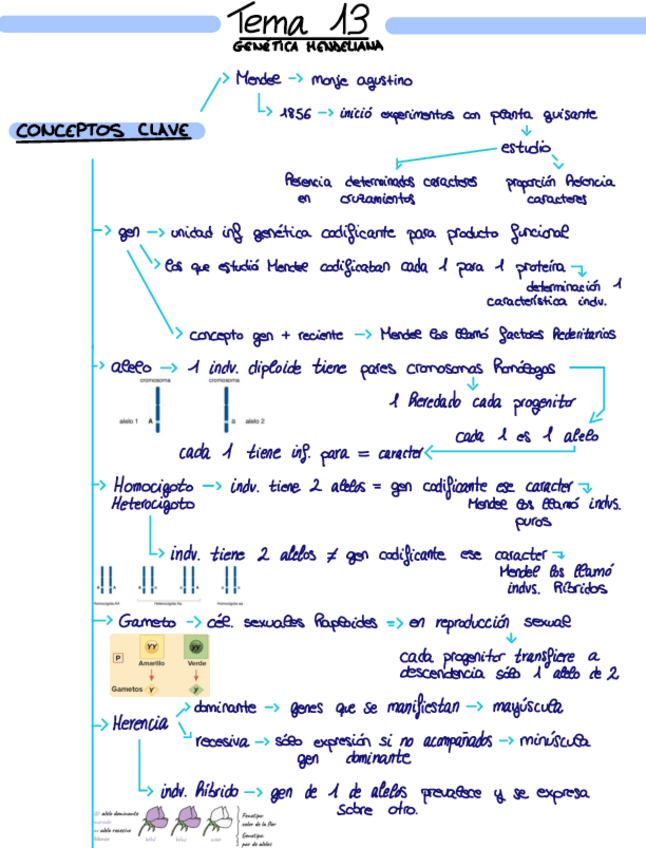 Tema 13
GENÉTICA MENDELIANA
Mendel -> monje agustino
CONCEPTOS CLAVE
1856 -> inició experimentos con planta guisante
estudio
herencia determinados caracteres
en cruzamientos
proporción herencia
caracteres
gen -> unidad inf genética codificante para producto funcional
los que estudió Mendel codificaban cada 1 para 1 proteína
determinación 1
característica indv.
concepto gen + reciente -> Mendel los llamó factores hereditarios
alelo -> 1 indv. diploide tiene pares cromosomas homólogos
cromosoma
cromosoma
1 heredado cada progenitor
alelo 1 A
a alelo 2
cada 1 es 1 alelo
cada 1 tiene inf. para = caracter
Homocigoto -> indv. tiene 2 alelos = gen codificante ese caracter
Heterocigoto
Mendel los llamó indvs.
puros
indv. tiene 2 alelos ≠ gen codificante ese caracter
Mendel los llamó
indvs. híbridos
Homocigota AA
Heterocigota Aa
Homocigota aa
Gameto -> cél. sexuales haploides => en reproducción sexual
P
YY
yy
Amarillo
Verde
Gametos Y y
cada progenitor transfiere a
descendencia sólo 1 alelo de 2
Herencia
dominante -> genes que se manifiestan -> mayúscula
recesiva -> sólo expresión si no acompañados -> minúscula
gen dominante
indv. híbrido -> gen de 1 de alelos prevalece y se expresa
sobre otro.
alelo dominante
morado
alelo recesivo
blanco
Fenotipo:
color de la flor
Genotipo:
par de alelos